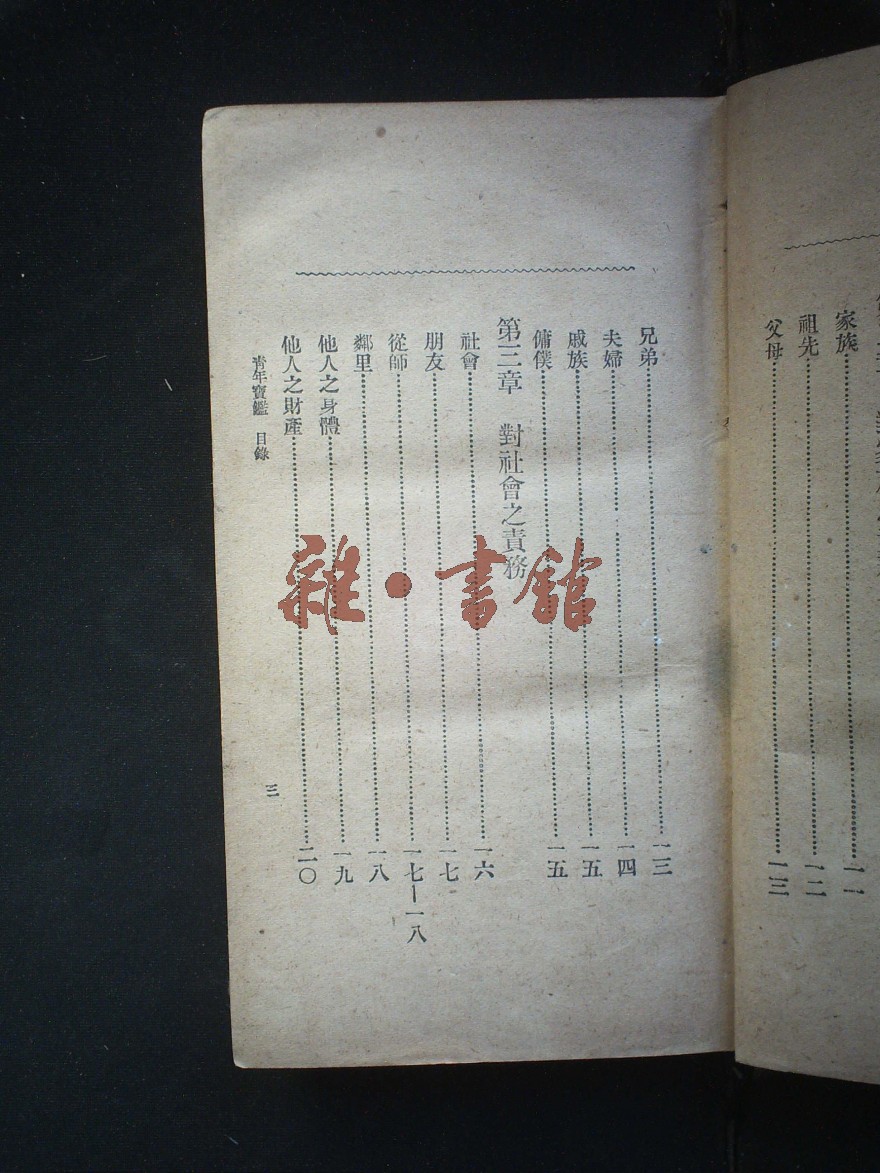 家族⋯⋯一一
祖先⋯⋯一二
父母⋯⋯一三
兄弟⋯⋯一三
夫婦⋯⋯一四
戚族⋯⋯一五
傭僕⋯⋯一五
第三章 對社會之責務
社會⋯⋯一六
朋友⋯⋯一七
從師⋯⋯一七—一八
鄰里⋯⋯一八
他人之身體⋯⋯一九
他人之財產⋯⋯二〇
青年寶鑑 目錄
三
雜·書館